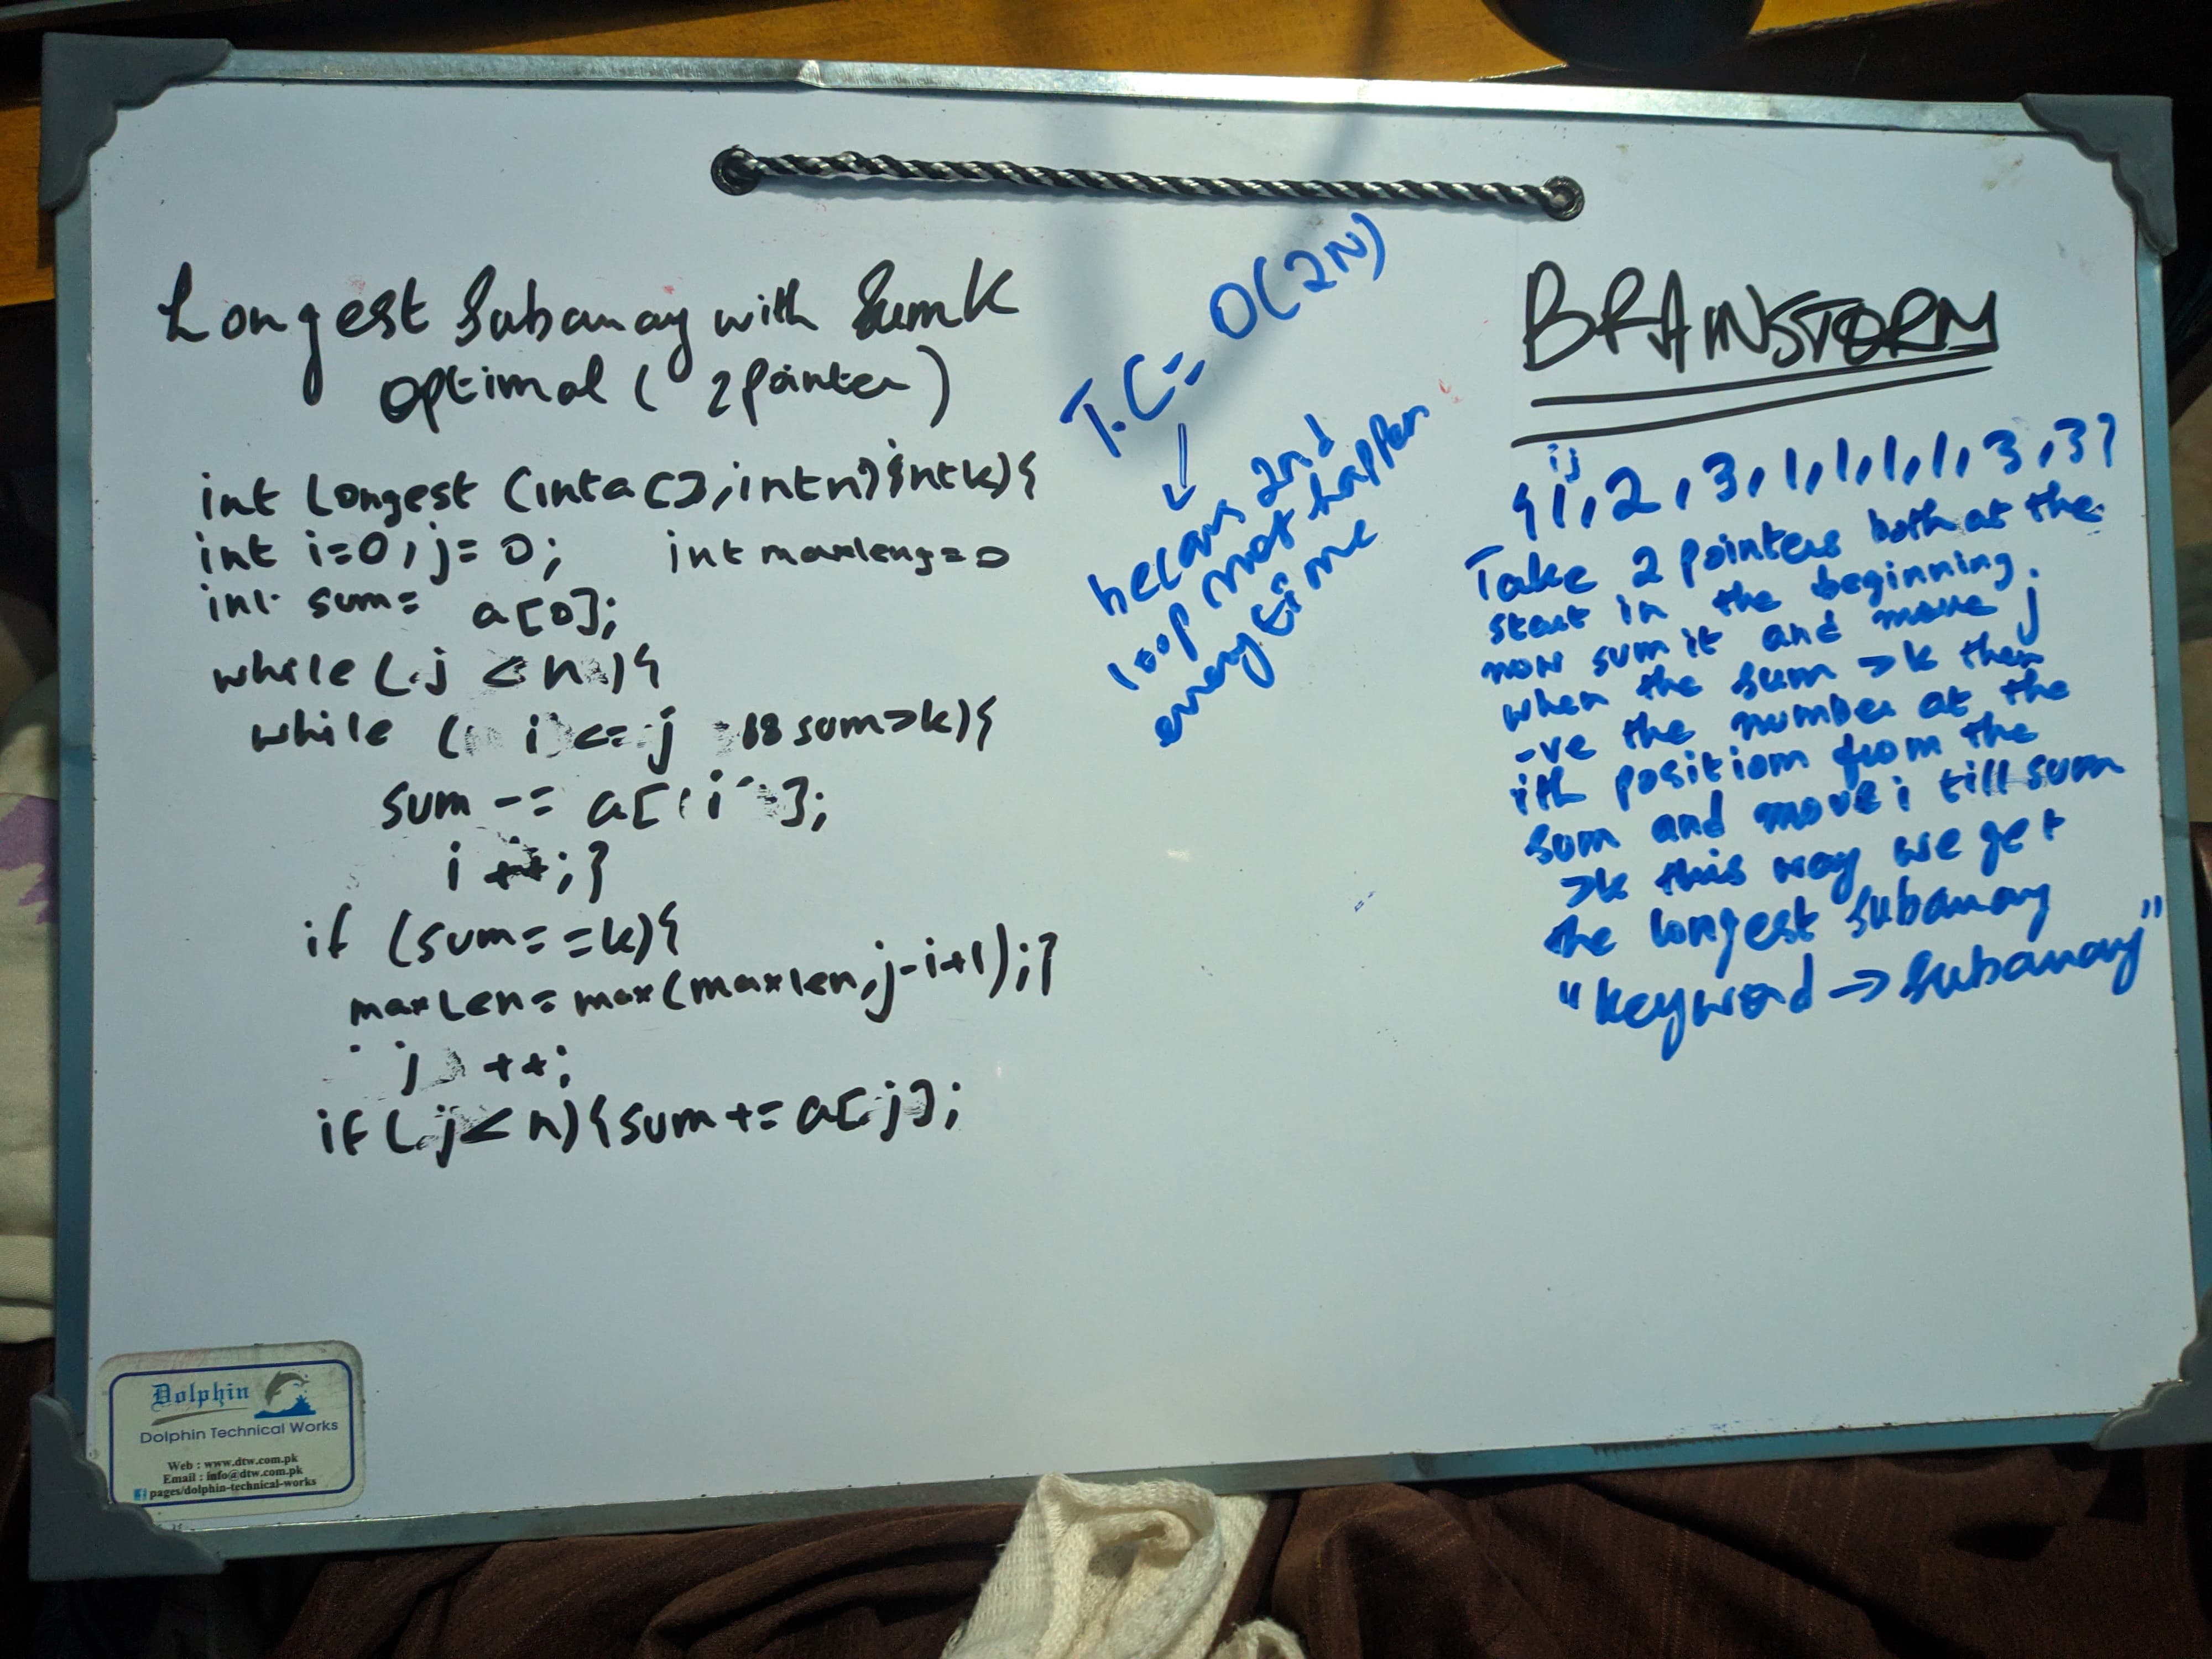 Longest Subarray with Sum K
Optimal ( 2 Pointer )
int Longest (int a [], int n) int k) {
int i=0, j= 0; int maxleng = 0
int sum= a[0];
while ( j < n ) {
while ( i <= j && sum>k) {
sum -= a[ i ];
i ++; }
if (sum==k) {
maxLen = max(maxlen, j-i+1); }
j ++;
if ( j < n) { sum += a[ j ];
T.C = O(2N)
↓
becaus 2nd
loop not happen
every time
BRAINSTORM
i j
{ 1, 2, 3, 1, 1, 1, 1, 3, 3 }
Take 2 pointers both at the
start in the beginning.
now sum it and move j
when the sum >k then
-ve the number at the
ith position from the
sum and move i till sum
>k this way we get
the longest subarray
"keyword → Subarray"
Dolphin
Dolphin Technical Works
Web : www.dtw.com.pk
Email : info@dtw.com.pk
pages/dolphin-technical-works